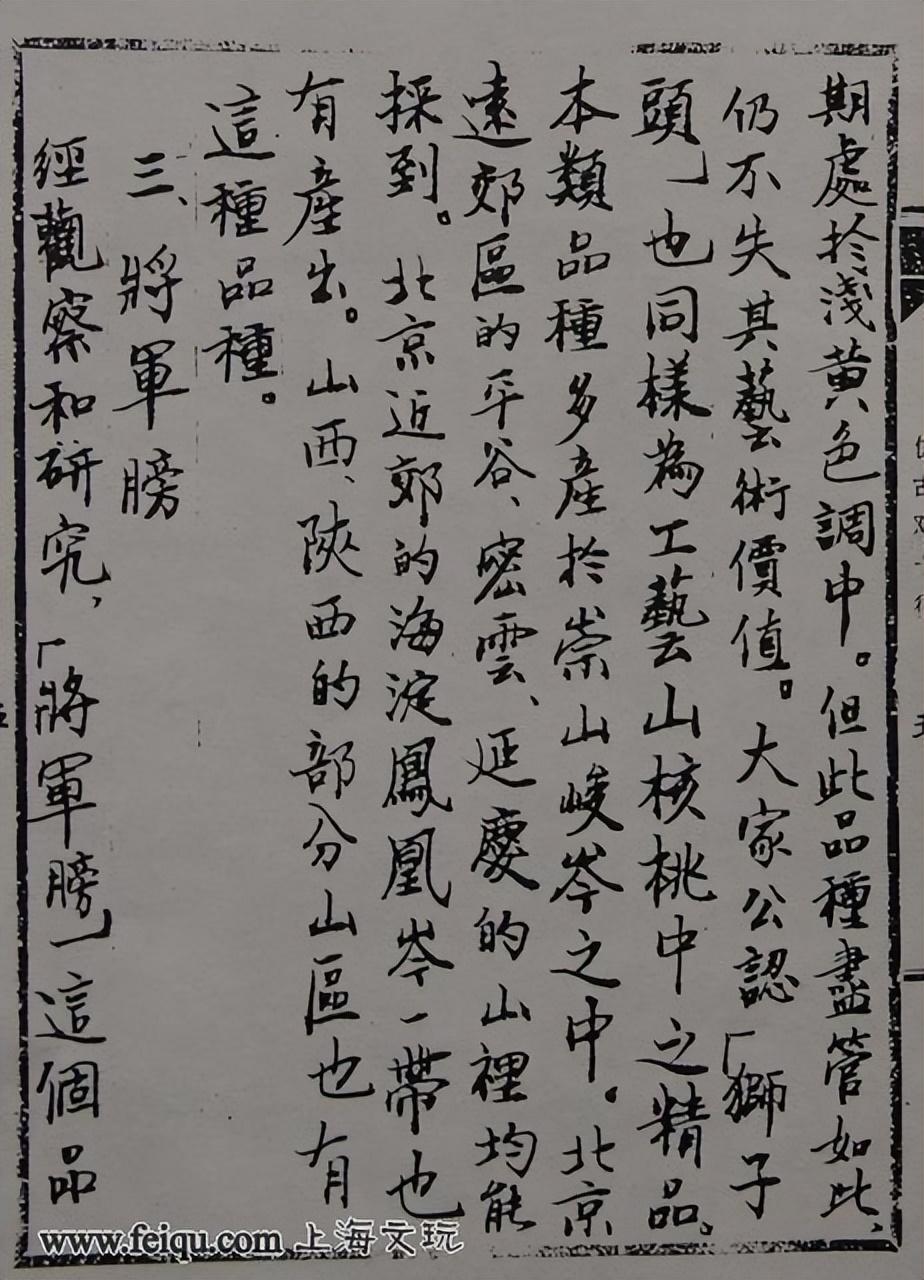 期處於淺黄色調中。但此品種盡管如此、
仍不失其藝術價值。大家公認「獅子
頭」也同樣為工藝山核桃中之精品。
本類品種多產於崇山峻岺之中。北京
遠郊區的平谷、密雲、延慶的山裡均能
採到。北京近郊的海淀鳳凰岺一帶也
有產出。山西、陝西的部分山區也有
這種品種。
三、將軍膀
經觀察和研究，「將軍膀」這個品
www.feiqu.com 上海文玩